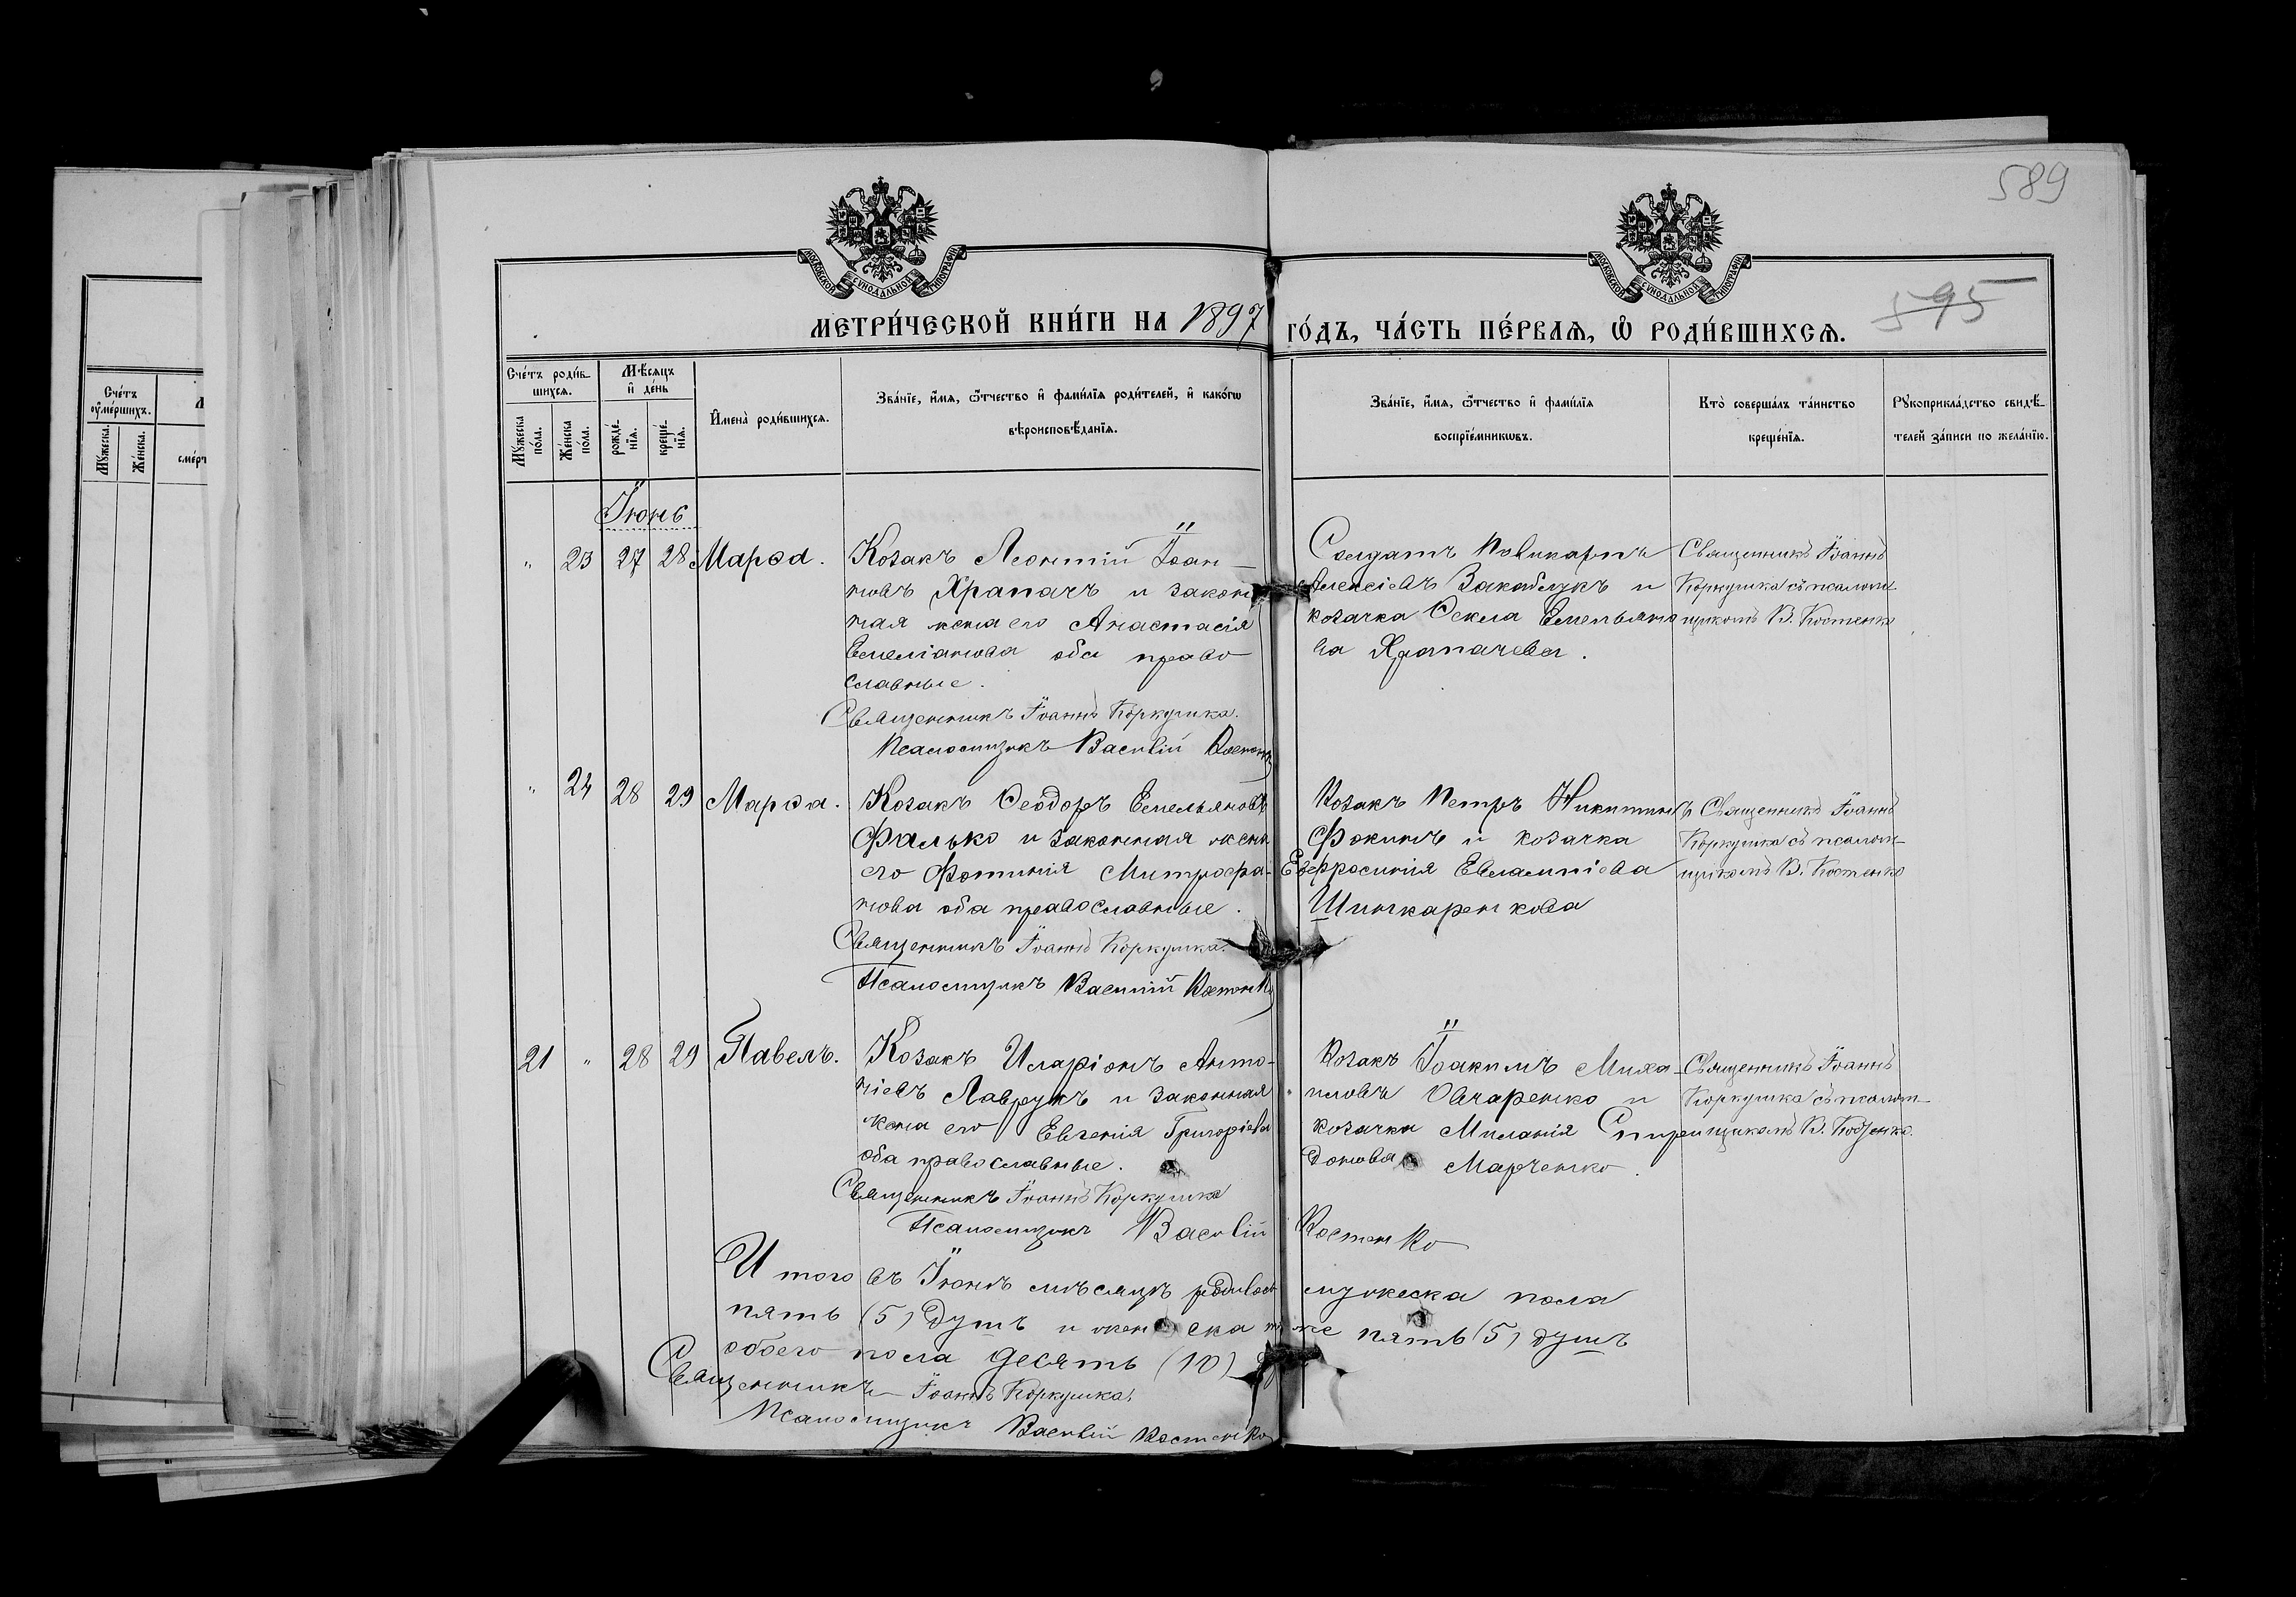 589
МОСКОВСКОЙ СѴНОДАЛЬНОЙ ТИПОГРАФІИ
МОСКОВСКОЙ СѴНОДАЛЬНОЙ ТИПОГРАФІИ
595
МЕТРИ́ЧЕСКОЙ КНИ́ГИ НА 1897 ГО́ДЪ, ЧА́СТЬ ПЕ́РВАѦ, Ѿ РОДИ́ВШИХСѦ.
Сче́тъ ᲂу҆ме́ршихъ.
Мꙋ́жеска.
Же́нска.
Сче́тъ роди́в-
шихсѧ.
Мꙋ́жеска по́ла.
Же́нска пола.
Мѣ́сѧцъ
и҆ де́нь
рожде́-
нїѧ.
креще́-
нїѧ.
И҆мена̀ роди́вшихсѧ.
Зва́нїе, и҆́мѧ, ѻ҆́тчество и҆ фами́лїѧ роди́телей, и҆ како́гѡ
вѣроисповѣ́данїѧ.
Зва́нїе, и҆́мѧ, ѻ҆́тчество и҆ фами́лїѧ
воспрїе́мникѡвъ.
Кто̀ соверша́лъ та́инство
креще́нїѧ.
Рꙋкоприкла́дство свидѣ́-
телей за́писи по жела́нїю.
Іюнь
" 23 27 28 Марѳа.
Козакъ Леонтій Іоан-
новъ Храпачъ и закон
ная жена его Анастасія
Емеліанова оба право
славные.
Священникъ Іоаннъ Коркушка.
Псаломщикъ Василій Костенко
Солдатъ Поликарпъ
Алексіевъ Закаблукъ и
козачка Фекла Емельяно
ва Храпачева.
Священникъ Іоаннъ
Коркушка съ псалом-
щикомъ В. Костенко
" 24 28 29 Марѳа.
Козакъ Ѳеодоръ Емельяновъ
Фалько и законная жена
его Фотинія Митрофа-
нова оба православные.
Священникъ Іоаннъ Коркушка.
Псаломщикъ Василій Костенко
Козакъ Петръ Никитинъ
Фокинъ и козачка
Евфросинія Евлампіева
Шинкаренкова
Священникъ Іоаннъ
Коркушка съ псалом-
щикомъ В. Костенко
21 " 28 29 Павелъ.
Козакъ Иларіонъ Анто-
ніевъ Лаврукъ и законная
жена его Евгенія Григоріева
оба православные.
Священникъ Іоаннъ Коркушка
Псаломщикъ Василій Костенко
Козакъ Іоакимъ Миха-
иловъ Овчаренко и
козачка Миланія Спири
донова Марченко.
Священникъ Іоаннъ
Коркушка съ псалом-
щикомъ В. Костенко.
Итого въ Іюнѣ мѣсяцѣ родилось мужеска пола
пять (5) душъ и женска тоже пять (5) душъ
обоего пола десять (10)
Священникъ Іоаннъ Коркушка.
Псаломщикъ Василій Костенко